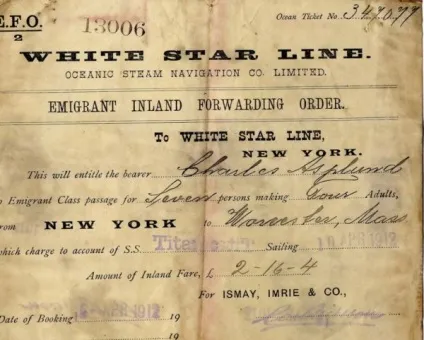 E.F.O.
2
13006
Ocean Ticket No. 347077
WHITE STAR LINE.
OCEANIC STEAM NAVIGATION CO. LIMITED.
EMIGRANT INLAND FORWARDING ORDER.
To WHITE STAR LINE,
NEW YORK.
This will entitle the bearer Charles Asplund
o Emigrant Class passage for Seven persons making Four Adults,
rom NEW YORK to Worcester, Mass
which charge to account of S.S. Titanic Sailing 10 APR 1912
Amount of Inland Fare, £ 2-16-4
For ISMAY, IMRIE & CO.,
Date of Booking APR 1912 19
19